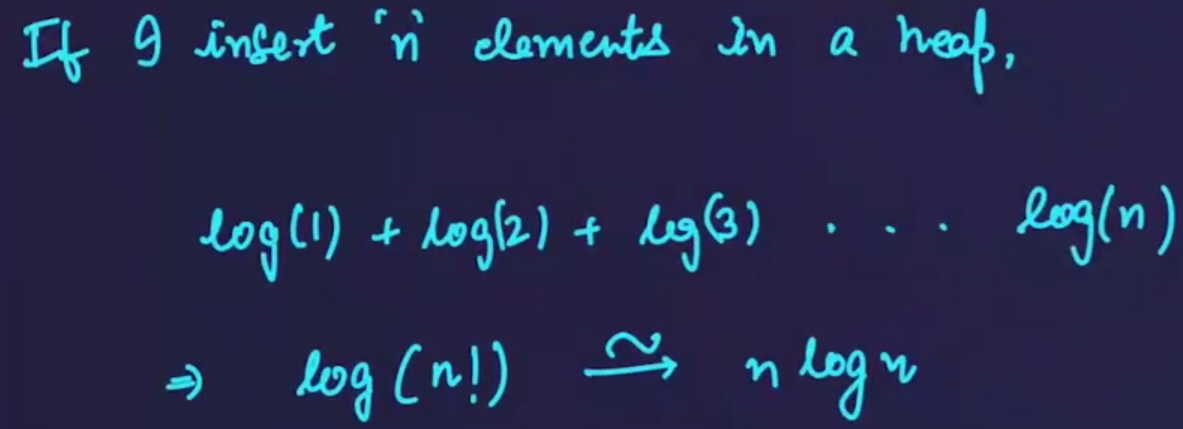 If I insert 'n' elements in a heap,
log(1) + log(2) + log(3) . . . . log(n)
⇒ log(n!) ~→ n log n